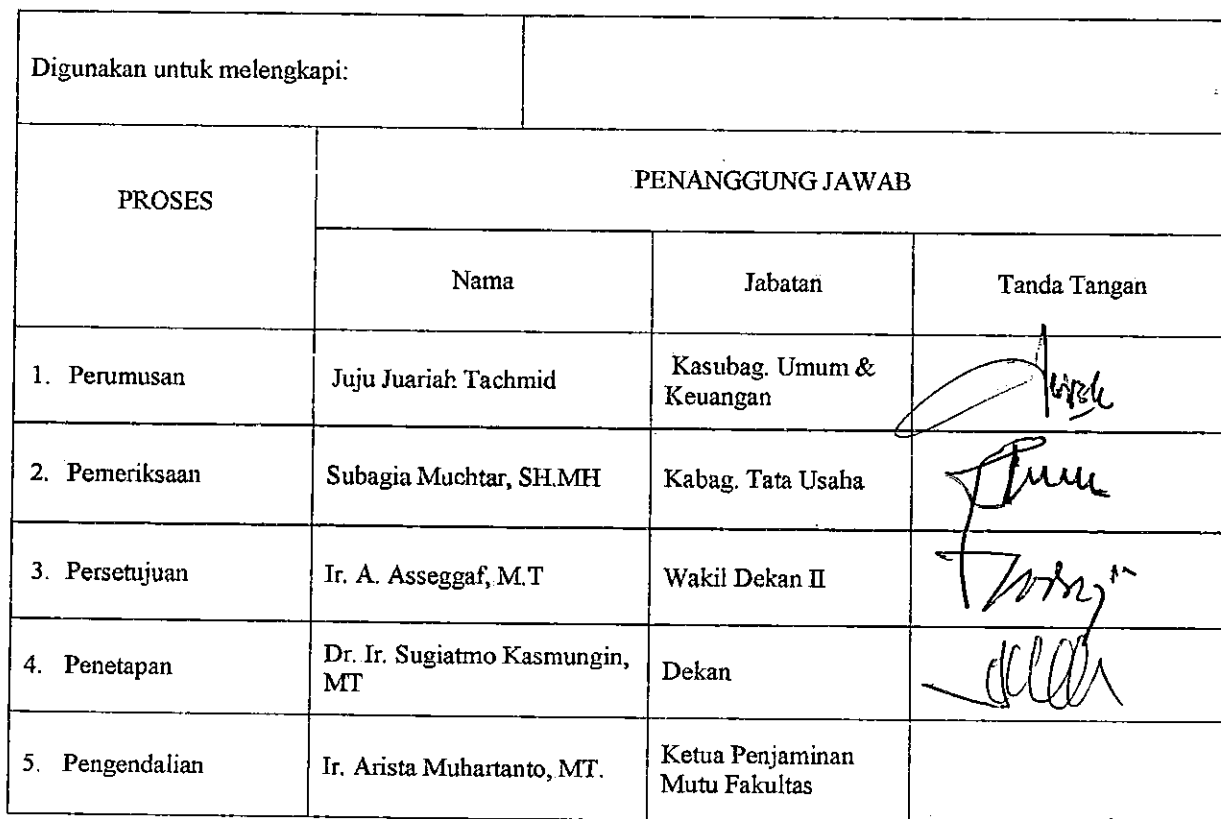 Digunakan untuk melengkapi:
PROSES
PENANGGUNG JAWAB
Nama
Jabatan
Tanda Tangan
1. Perumusan
Juju Juariah Tachmid
Kasubag. Umum &
Keuangan
2. Pemeriksaan
Subagia Muchtar, SH.MH
Kabag. Tata Usaha
3. Persetujuan
Ir. A. Asseggaf, M.T
Wakil Dekan II
4. Penetapan
Dr. Ir. Sugiatmo Kasmungin,
MT
Dekan
5. Pengendalian
Ir. Arista Muhartanto, MT.
Ketua Penjaminan
Mutu Fakultas